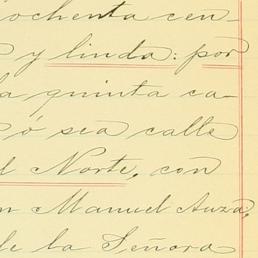 ochenta cen-
y linda: por
la quinta ca-
ó sea calle
l Norte, con
n Manuel Auza,
de la Señora